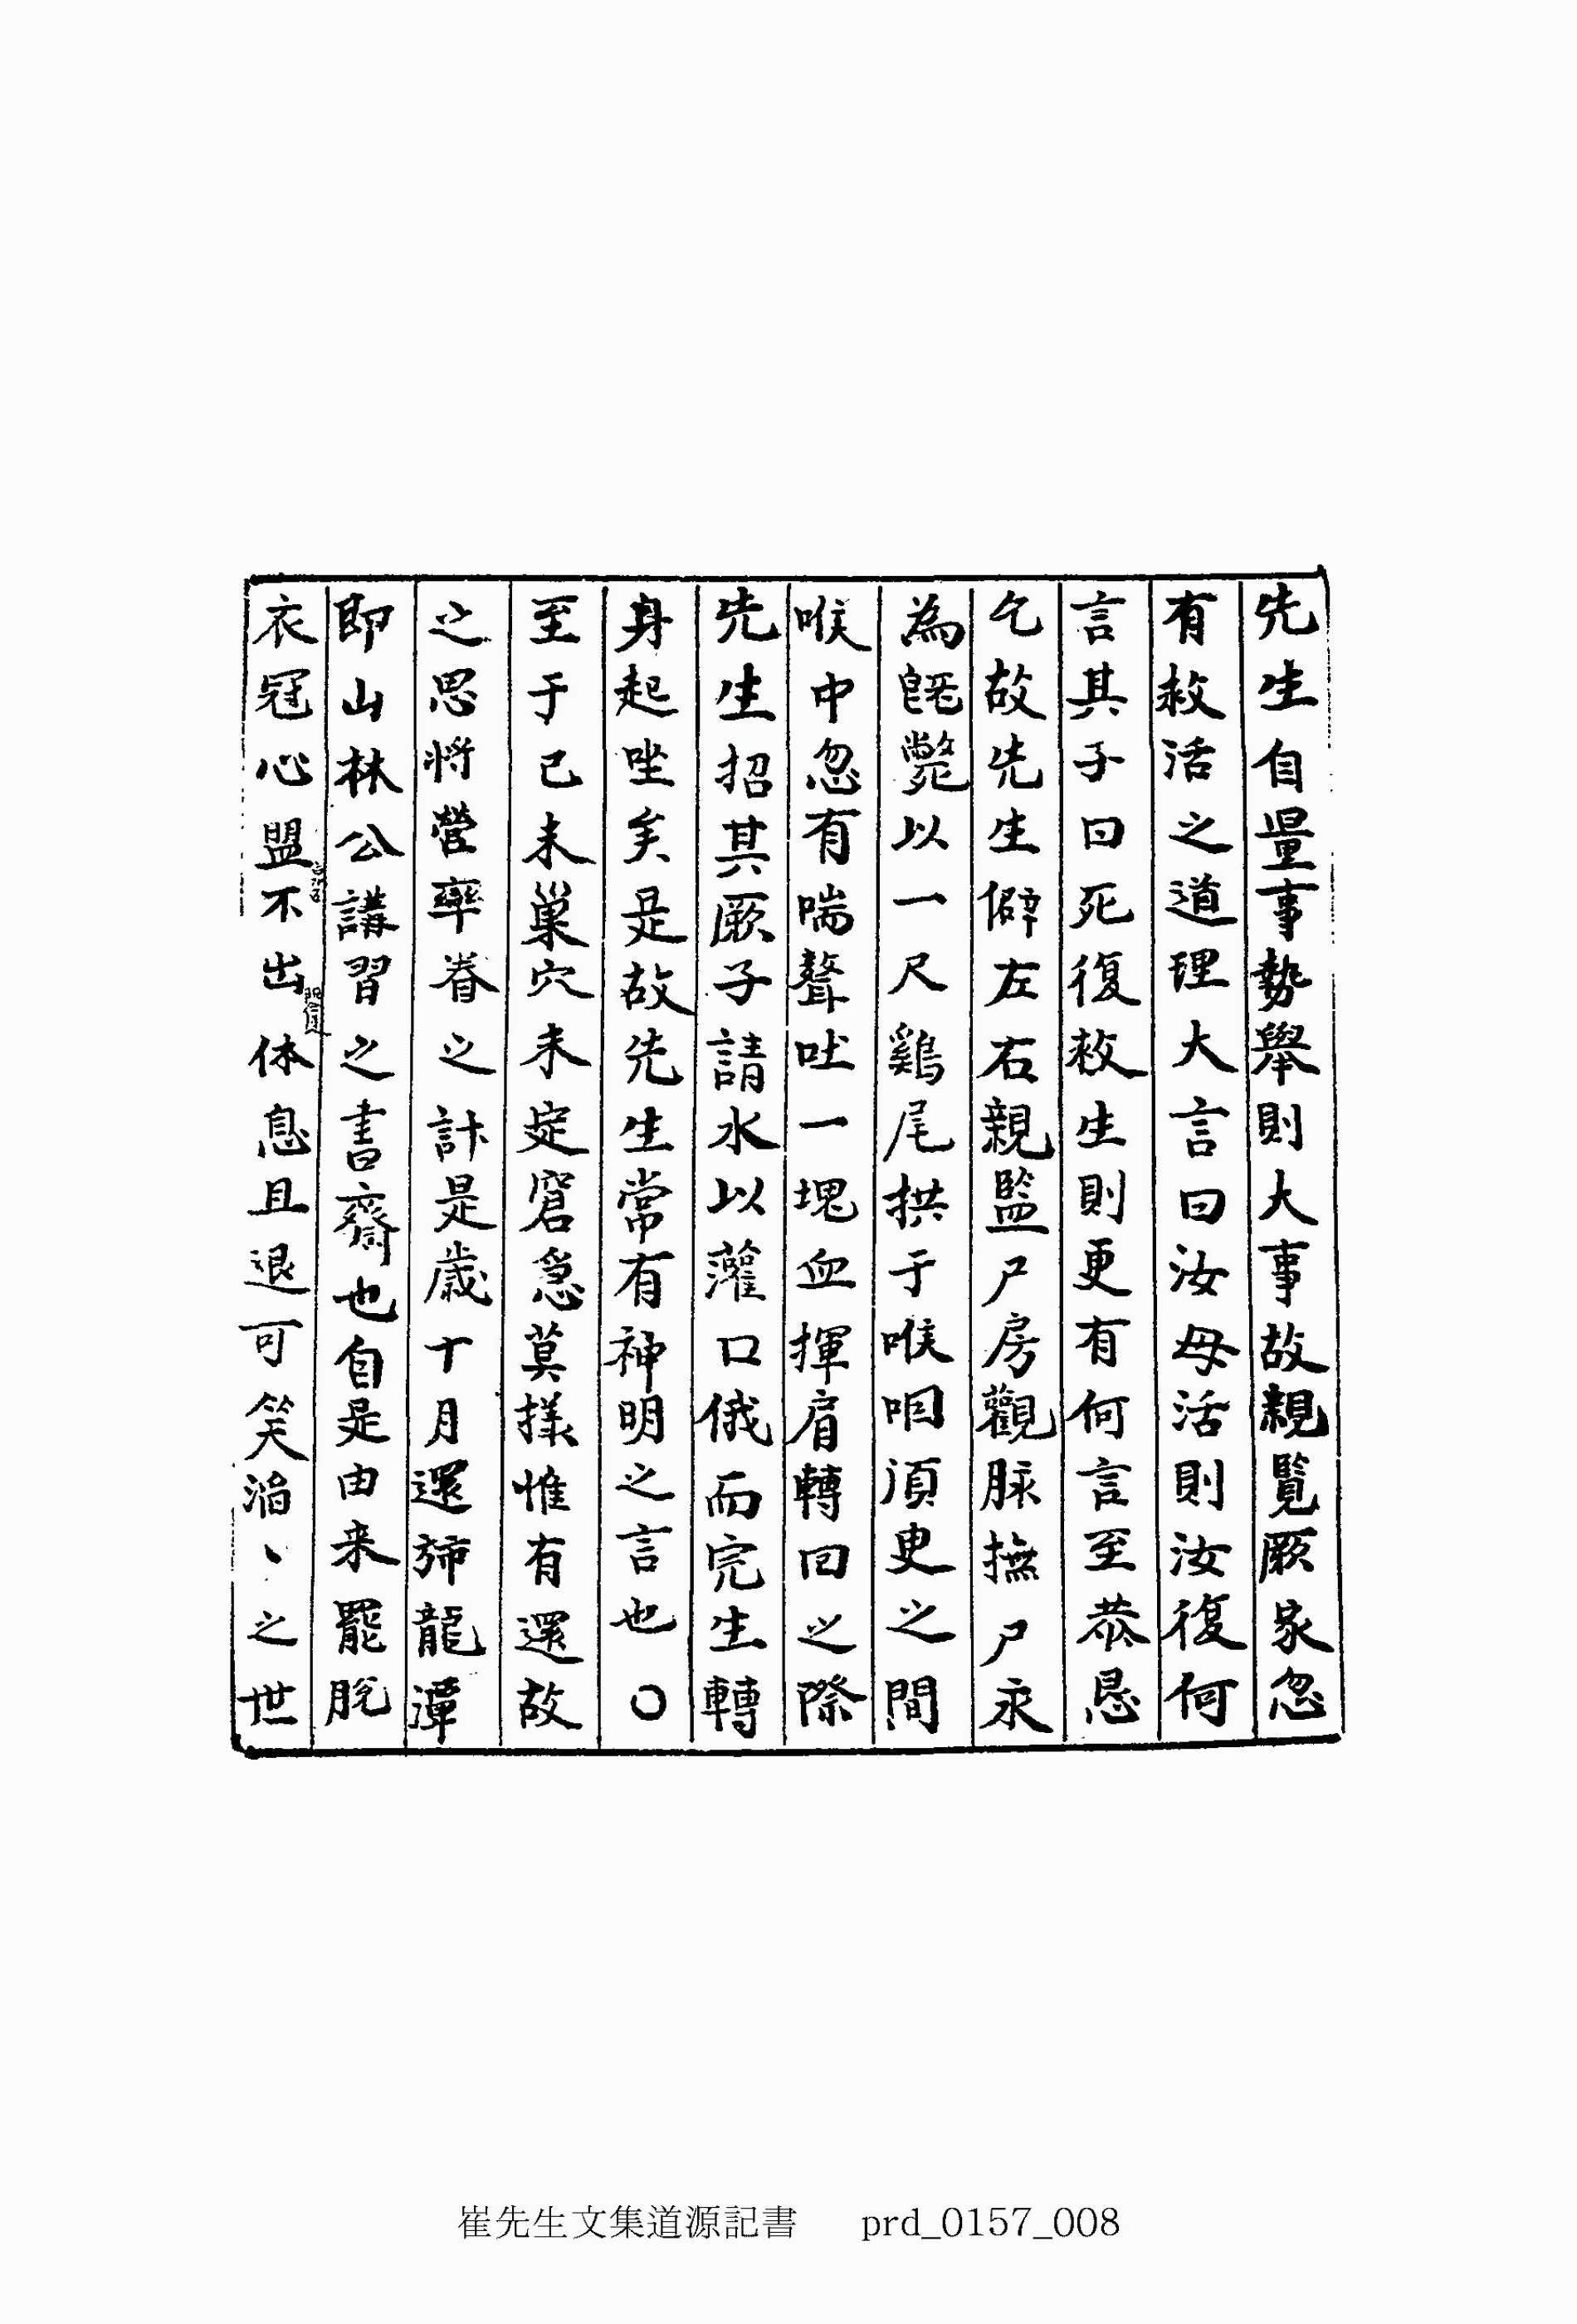 先生自量事勢擧則大事故親覧厥家忽
有救活之道理大言曰汝母活則汝復何
言其子曰死復救生則更有何言至恭恳
乞故先生僻左右親監尸房觀脉撫尸永
為旣斃以一尺鷄尾拱于喉咽湏臾之間
喉中忽有喘聲吐一塊血揮肩轉回之際
先生招其厥子請水以灌口俄而完生轉
身起坐矣是故先生常有神明之言也〇
至于己未巢穴未定窘急莫搓惟有還故
之思将營率眷之計是歳十月還歸龍潭
即山林公講習之書齋也自是由来罷脫
衣冠心盟不出休息且退可笑滔丶之世
崔先生文集道源記書 prd_0157_008